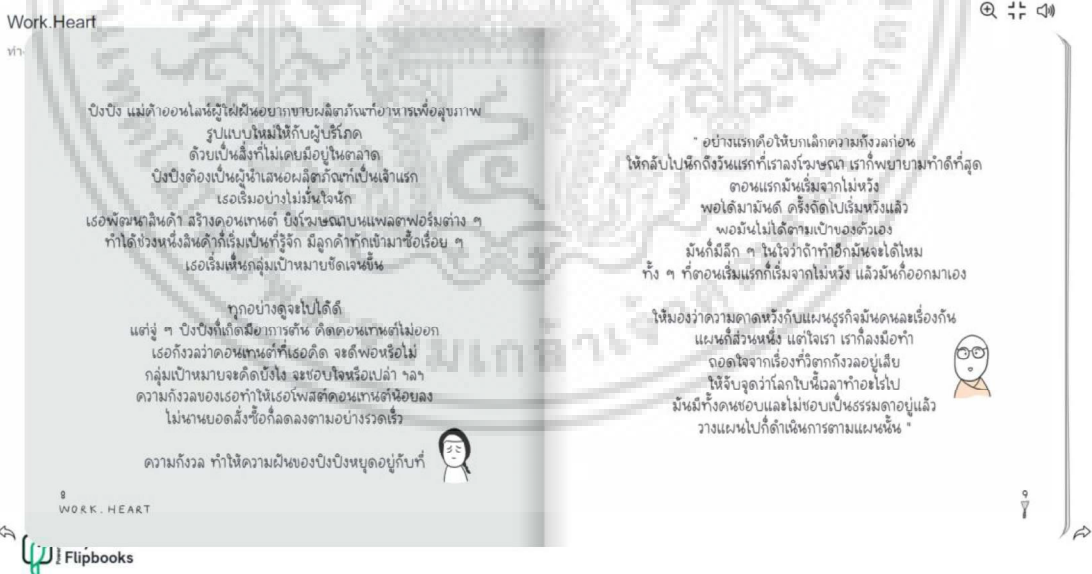 Work.Heart
ปิงปิง แม่ค้าออนไลน์ผู้ใฝ่ฝันอยากขายผลิตภัณฑ์อาหารเพื่อสุขภาพ
รูปแบบใหม่ให้กับผู้บริโภค
ด้วยเป็นสิ่งที่ไม่เคยมีอยู่ในตลาด
ปิงปิงต้องเป็นผู้นำเสนอผลิตภัณฑ์เป็นเจ้าแรก
เธอเริ่มอย่างไม่มั่นใจนัก
เธอพัฒนาสินค้า สร้างคอนเทนต์ ยิงโฆษณาบนแพลตฟอร์มต่าง ๆ
ทำได้ช่วงหนึ่งสินค้าก็เริ่มเป็นที่รู้จัก มีลูกค้าทักเข้ามาซื้อเรื่อย ๆ
เธอเริ่มเห็นกลุ่มเป้าหมายชัดเจนขึ้น
ทุกอย่างดูจะไปได้ดี
แต่จู่ ๆ ปิงปิงก็เกิดมีอาการตัน คิดคอนเทนต์ไม่ออก
เธอกังวลว่าคอนเทนต์ที่เธอคิด จะดีพอหรือไม่
กลุ่มเป้าหมายจะคิดยังไง จะชอบใจหรือเปล่า ฯลฯ
ความกังวลของเธอทำให้เธอโพสต์คอนเทนต์น้อยลง
ไม่นานยอดสั่งซื้อก็ลดลงตามอย่างรวดเร็ว
ความกังวล ทำให้ความฝันของปิงปิงหยุดอยู่กับที่
8
WORK.HEART
" อย่างแรกคือให้ยกเลิกความกังวลก่อน
ให้กลับไปนึกถึงวันแรกที่เราลงโฆษณา เราก็พยายามทำดีที่สุด
ตอนแรกมันเริ่มจากไม่หวัง
พอได้มามันดี ครั้งถัดไปเริ่มหวังแล้ว
พอมันไม่ได้ตามเป้าของตัวเอง
มันก็มีลึก ๆ ในใจว่าถ้าทำอีกมันจะได้ไหม
ทั้ง ๆ ที่ตอนเริ่มแรกก็เริ่มจากไม่หวัง แล้วมันก็ออกมาเอง
ให้มองว่าความคาดหวังกับแผนธุรกิจมันคนละเรื่องกัน
แผนก็ส่วนหนึ่ง แต่ใจเรา เราก็ลงมือทำ
ถอดใจจากเรื่องที่วิตกกังวลอยู่เสีย
ให้จับจุดว่าโลกใบนี้เวลาทำอะไรไป
มันมีทั้งคนชอบและไม่ชอบเป็นธรรมดาอยู่แล้ว
วางแผนไปก็ดำเนินการตามแผนนั้น "
9
Flipbooks